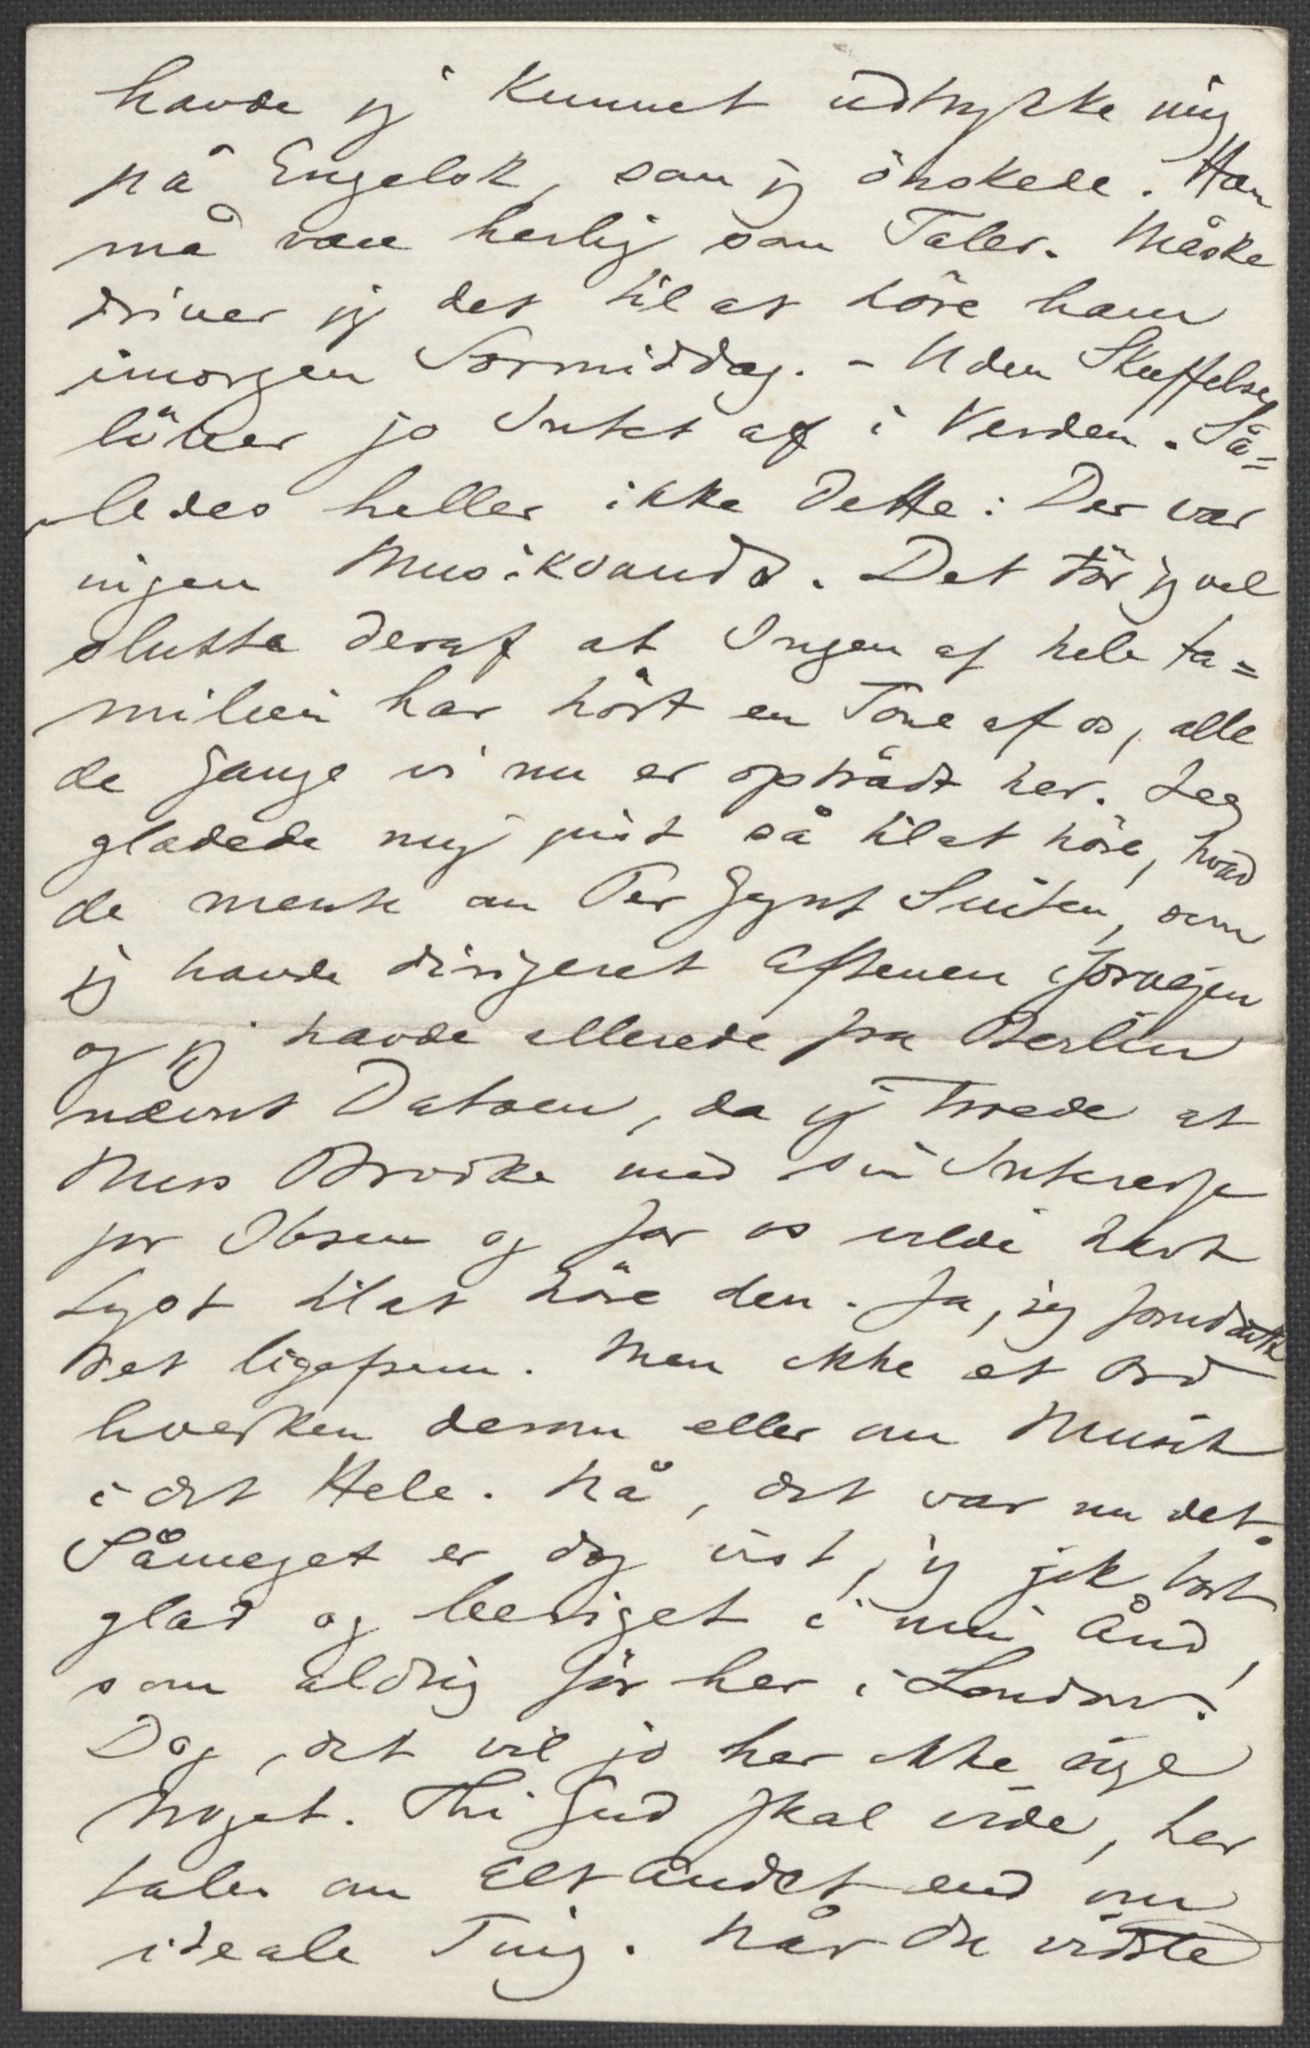 havde jeg kunnet udtrykke mig
på Engelsk, som jeg önskede. Han
må være herlig som Taler. Måske
driver jeg det til at höre ham
imorgen Formiddag. – Uden Skuffelse
löber jo Intet af i Verden. Så=
ledes heller ikke dette: Der var
ingen Musiksands. Det tör jeg vel
slutte deraf at Ingen af hele Fa=
milien har hört en Tone af os, alle
de Gange vi nu er optrådt her. Jeg
glædede mig just så til at höre, hvad
de mente om Per Gynt Suiten, som
jeg havde dirigeret Aftenen iforvejen
og jeg havde allerede fra Berlin
nævnt Datoen, da jeg troede at
Miss Brooke med sin Interesse
for Ibsen og for os vilde havt
Lyst til at höre den. Ja, jeg forudsatte
det ligefrem. Men ikke et Ord
hverken derom eller om Musik
i det Hele. Nå, det var nu det.
Såmeget er dog vist, jeg gik bort
glad og beriget i min Ånd,
som aldrig för her i London.
Dog, det vil jo her ikke sige
Noget. Thi Gud skal vide, her
tales om alt andet end om
ideale Ting. Når du vidste